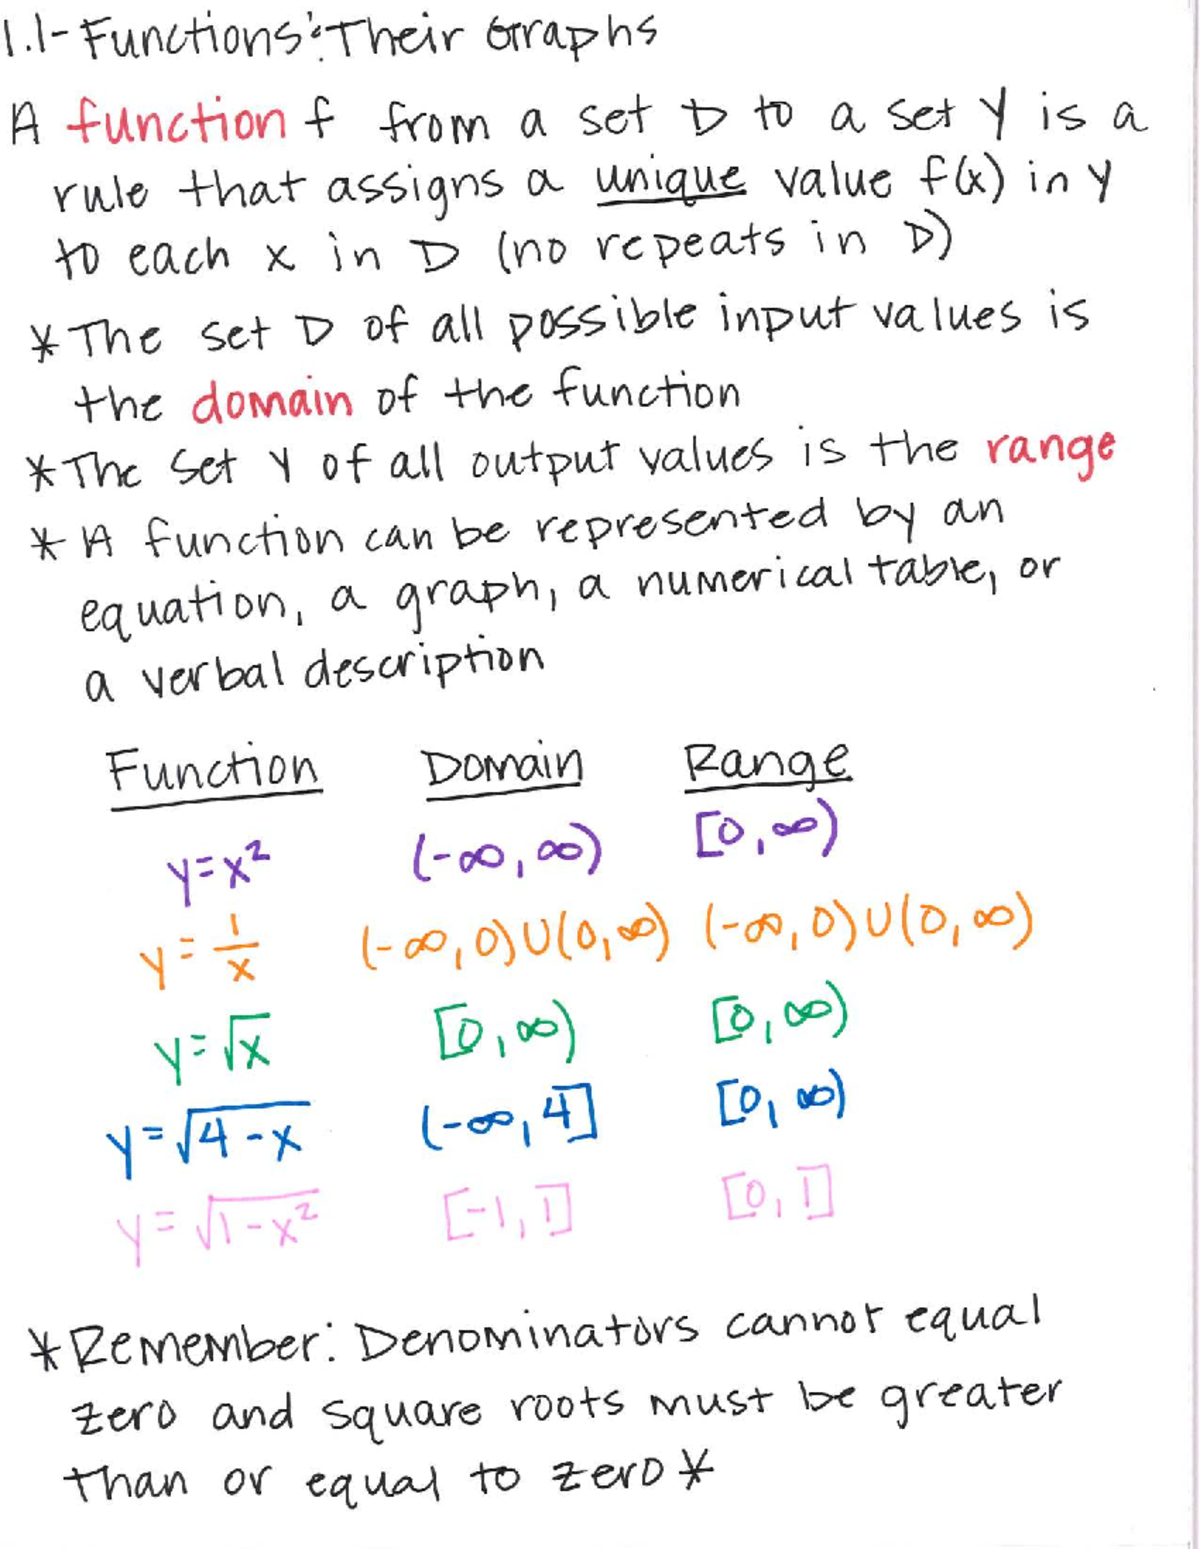 1.1-Functions & Their Graphs
A function f from a set D to a set Y is a
rule that assigns a unique value f(x) in Y
to each x in D (no repeats in D)
* The set D of all possible input values is
the domain of the function
* The set Y of all output values is the range
* A function can be represented by an
equation, a graph, a numerical table, or
a verbal description
Function Domain Range
y=x² (-∞,∞) [0,∞)
y=1/x (-∞,0)∪(0,∞) (-∞,0)∪(0,∞)
y=√x [0,∞) [0,∞)
y=√(4-x) (-∞,4] [0,∞)
y=√(1-x²) [-1,1] [0,1]
* Remember: Denominators cannot equal
zero and square roots must be greater
than or equal to zero *